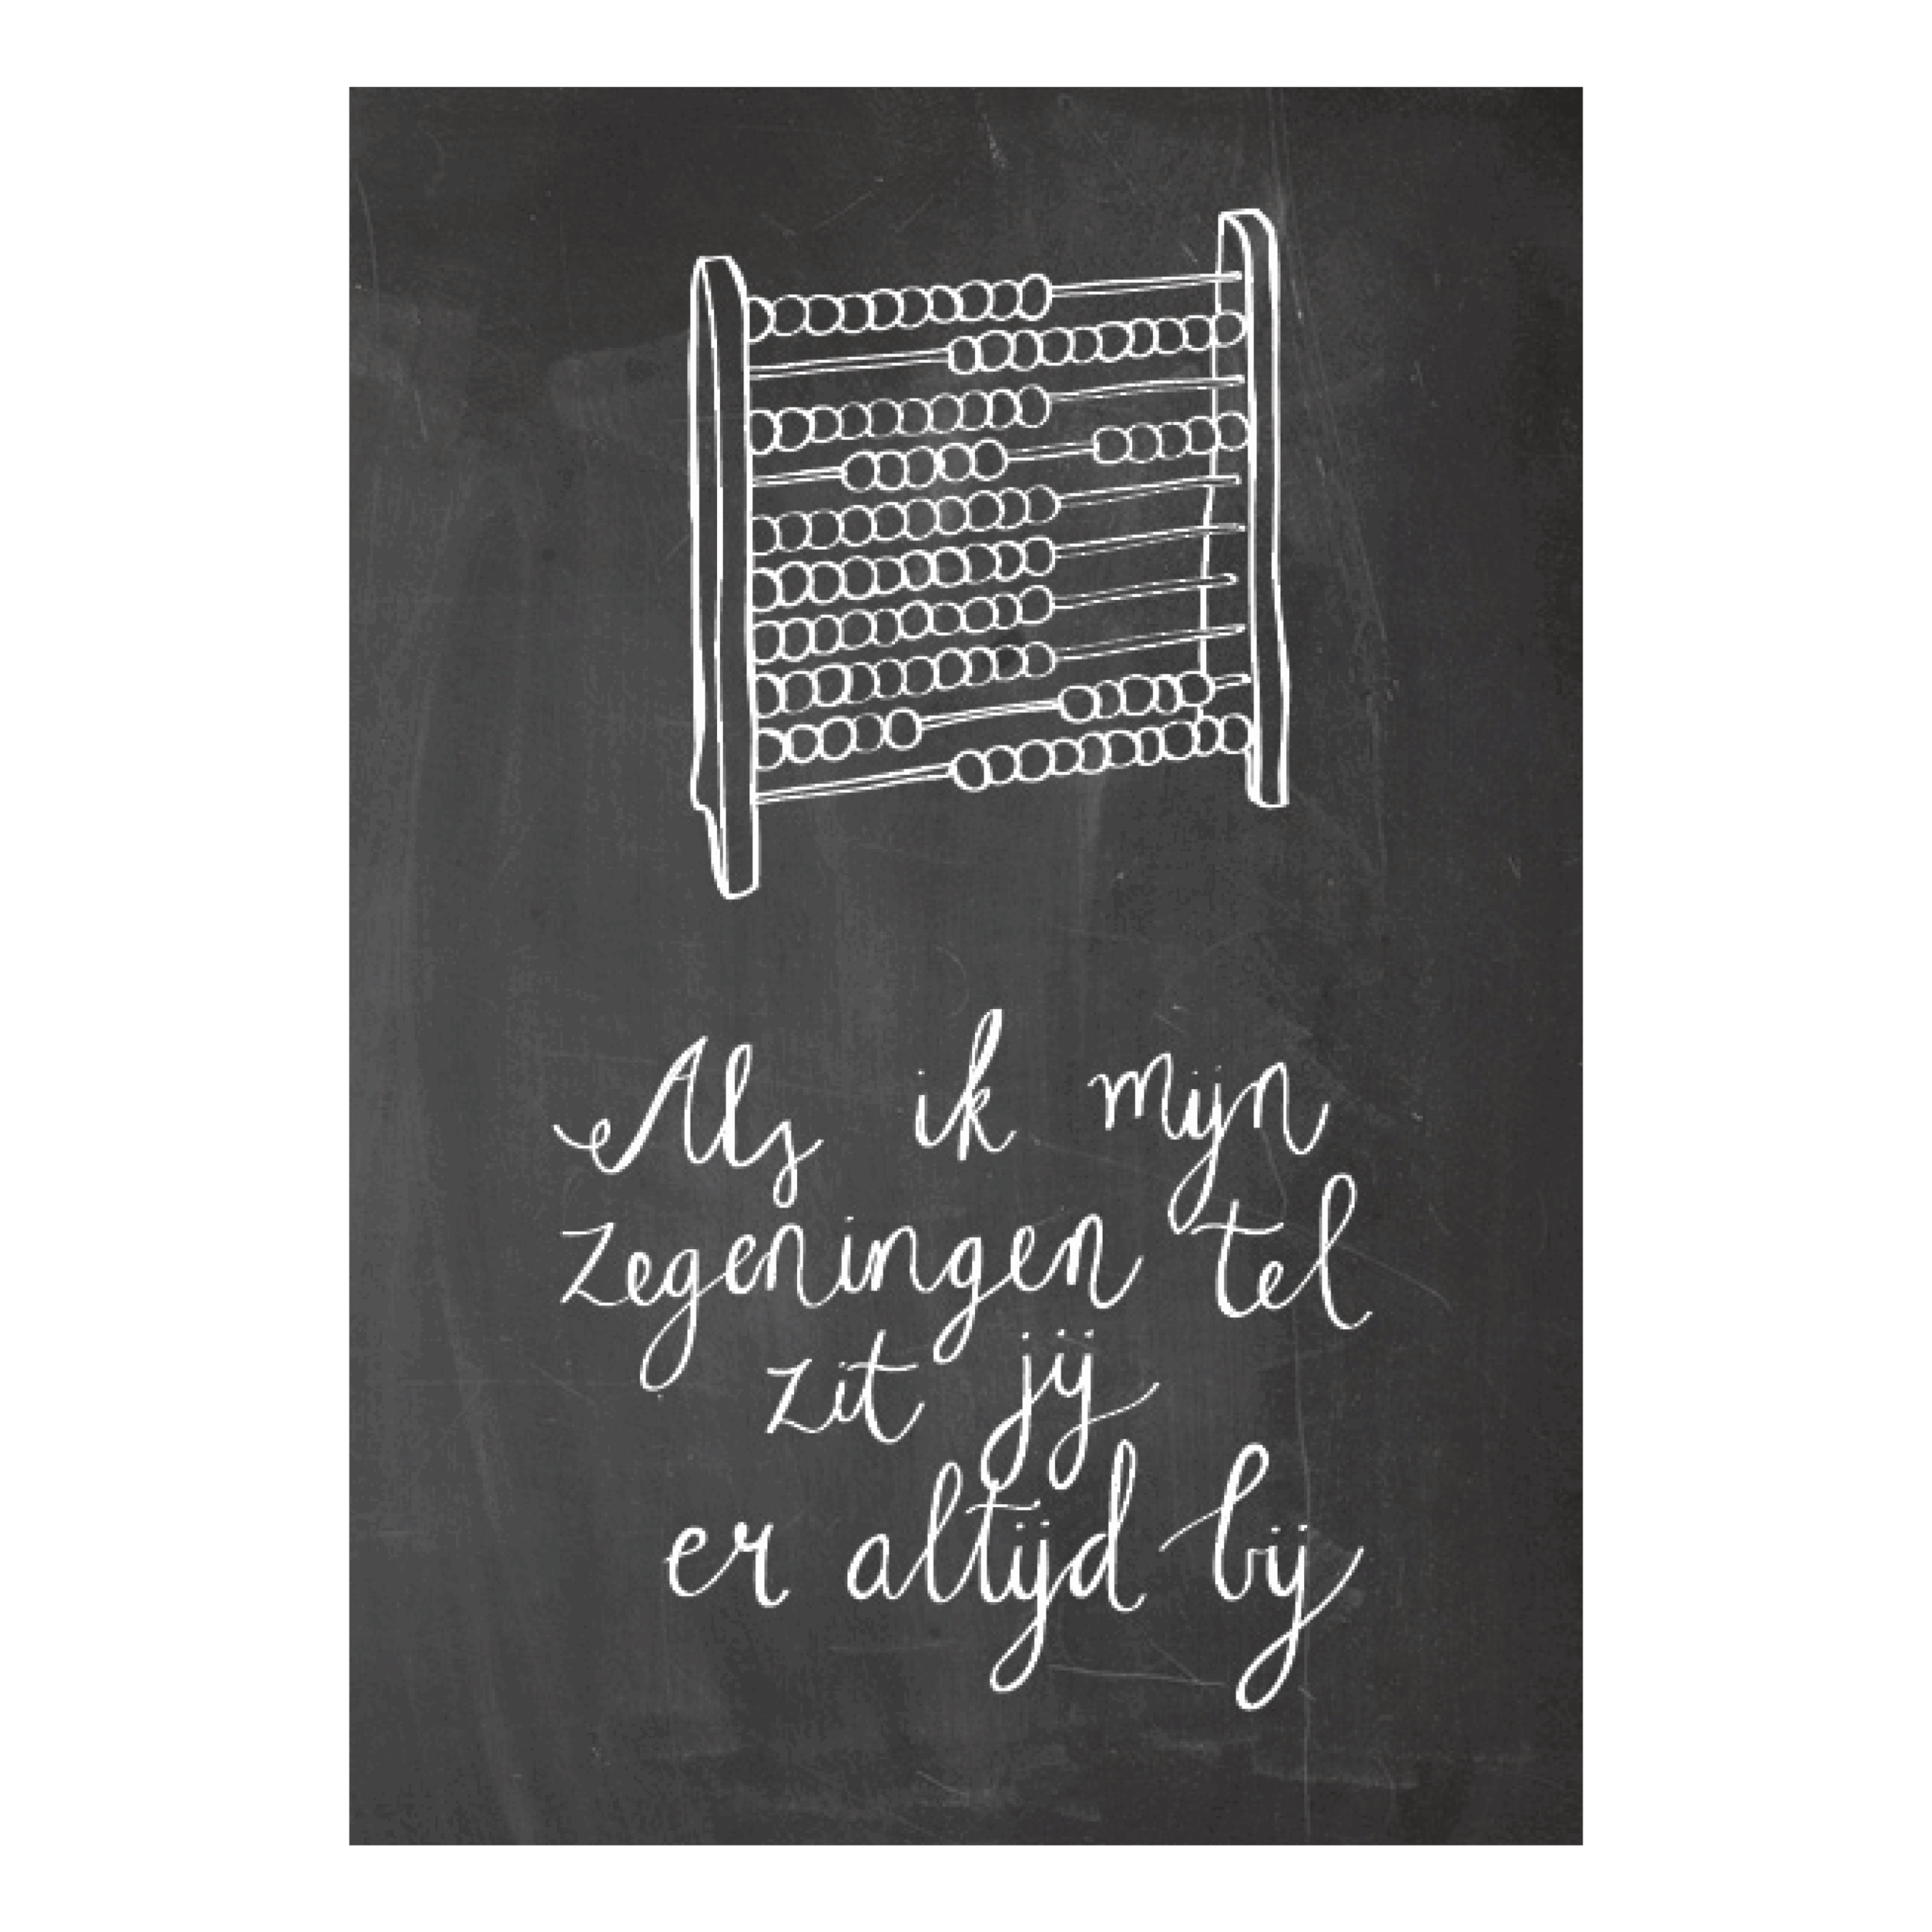 Als ik mijn
zegeningen tel
zit jij
er altijd bij